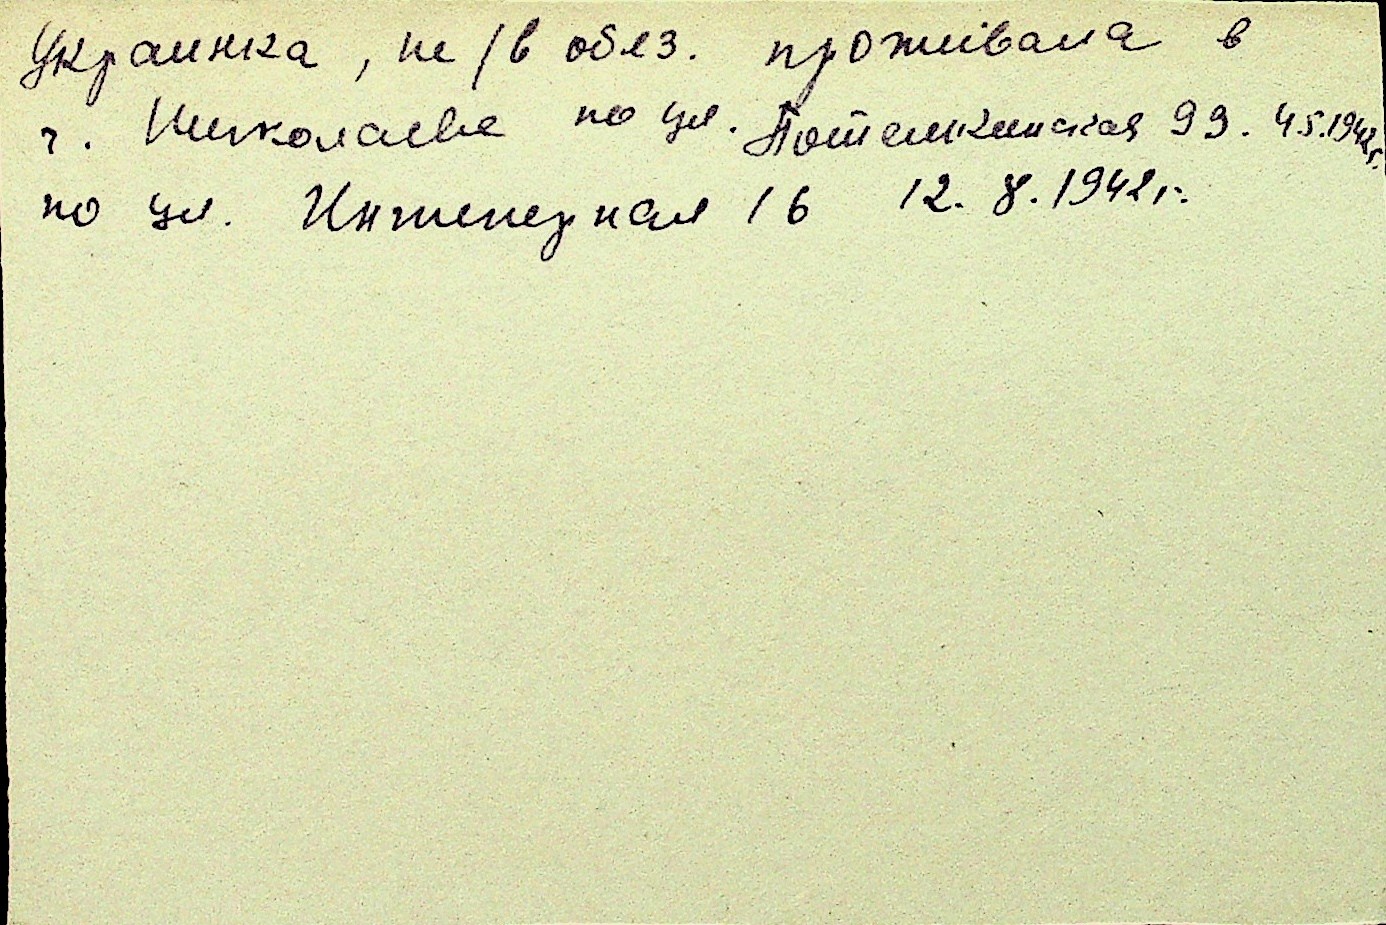 Украинка, не/в обяз. прожівала в
г. Николаеве по ул. Потемкинская 99. 4.5.1942г.
по ул. Инженерная 16 12.8.1942г.